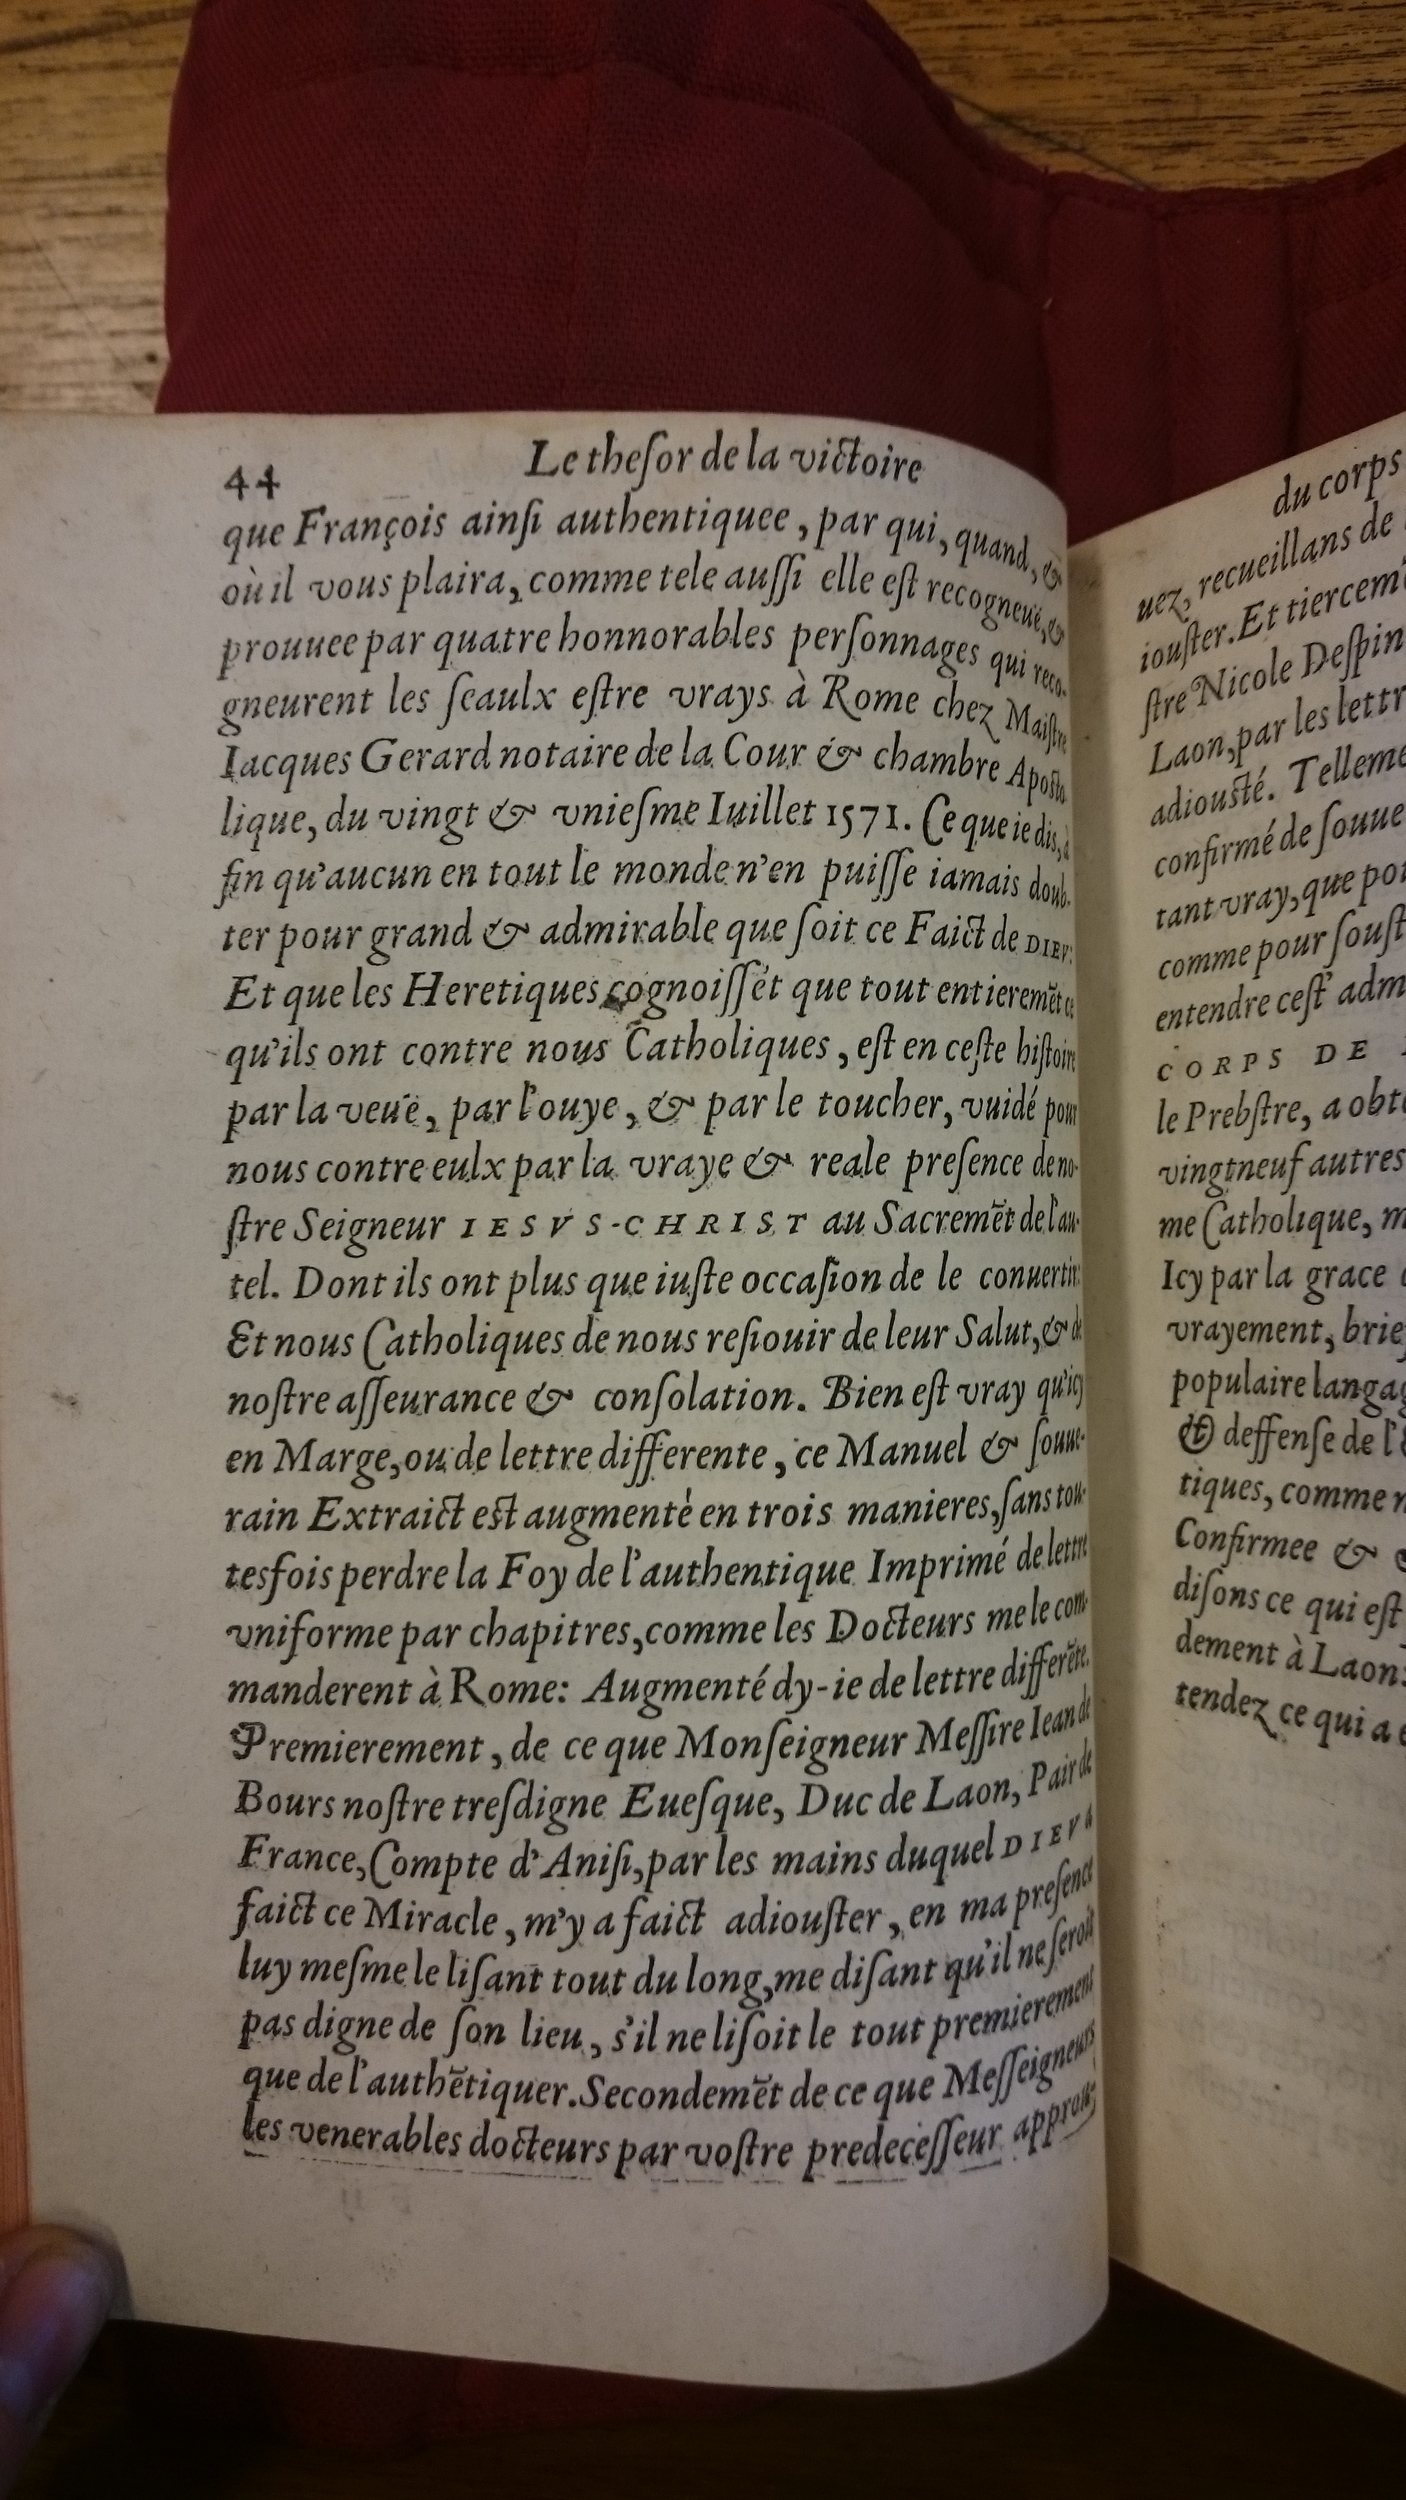 44
Le theſor de la victoire
que François ainſi authentiquee, par qui, quand, &
où il vous plaira, comme tele auſſi elle eſt recogneuë, &
prouuee par quatre honnorables perſonnages qui reco-
gneurent les ſeaulx eſtre vrays à Rome chez Maiſtre
Iacques Gerard notaire de la Cour & chambre Apoſto
lique, du vingt & vnieſme Iuillet 1571. Ce que ie dis, à
fin qu'aucun en tout le monde n'en puiſſe iamais doub-
ter pour grand & admirable que ſoit ce Faict de DIEV:
Et que les Heretiques cognoiſſēt que tout entieremēt ce
qu'ils ont contre nous Catholiques, eſt en ceſte hiſtoire
par la veuë, par l'ouye, & par le toucher, vuidé pour
nous contre eulx par la vraye & reale preſence de no-
ſtre Seigneur IESVS-CHRIST au Sacremēt de l'au-
tel. Dont ils ont plus que iuſte occaſion de ſe conuertir:
Et nous Catholiques de nous reſiouir de leur Salut, & de
noſtre aſſeurance & conſolation. Bien eſt vray qu'icy
en Marge, ou de lettre differente, ce Manuel & ſouue-
rain Extraict est augmenté en trois manieres, ſans tou-
tesfois perdre la Foy de l'authentique Imprimé de lettre
vniforme par chapitres, comme les Docteurs me le com-
manderent à Rome: Augmenté dy-ie de lettre differēte.
Premierement, de ce que Monſeigneur Meſſire Iean de
Bours noſtre treſdigne Eueſque, Duc de Laon, Pair de
France, Compte d'Aniſi, par les mains duquel DIEV à
faict ce Miracle, m'y a faict adiouſter, en ma preſence
luy meſme le liſant tout du long, me diſant qu'il ne ſeroit
pas digne de ſon lieu, s'il ne liſoit le tout premierement
que de l'authētiquer. Secondemēt de ce que Meſſeigneurs
les venerables docteurs par voſtre predeceſſeur
du corps
uez, recueillans de
iouſter. Et tiercem
ſtre Nicole Deſpin
Laon, par les lettr
adiousté. Telleme
confirmé de ſouue
tant vray, que pou
comme pour ſouſt
entendre ceſt' adm
CORPS DE
le Prebſtre, a obte
vingtneuf autres
me Catholique, m
Icy par la grace
vrayement, brie
populaire langag
& deffenſe de l'
tiques, comme n
Confirmee &
diſons ce qui eſt
dement à Laon:
tendez ce qui a